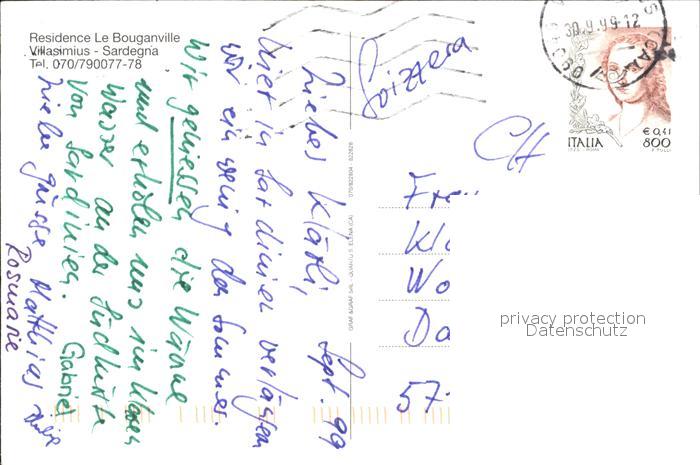 Residence Le Bouganville
Villasimius - Sardegna
Tel. 070/790077-78
Liebes Klärli, Sept. 99
Hier in Sardinien verlängern
wir ein wenig den Sommer.
Wir geniessen die Wärme
und erholen uns im klaren
Wasser an der Südküste
von Sardinien. Gabriel
Liebe Grüsse Matthias
Rosmarie
GRAF &GRAF SRL - QUARTU S. ELENA (CA)
Svizzera
CH
Fr
Kl
Wo
Da
57
30.9.99-12
ITALIA
€ 0,41
800
privacy protection
Datenschutz